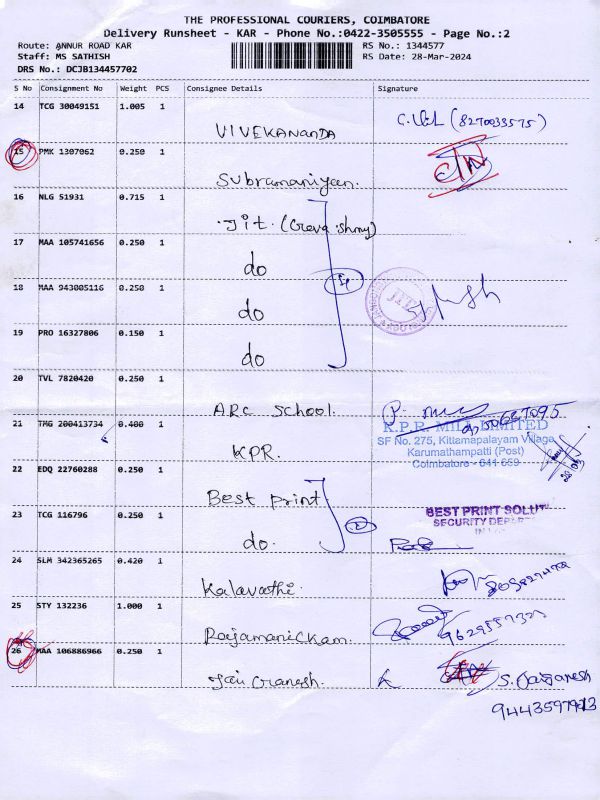 THE PROFESSIONAL COURIERS, COIMBATORE
Delivery Runsheet - KAR - Phone No.:0422-3505555 - Page No.:2
Route: ANNUR ROAD KAR
RS No.: 1344577
Staff: MS SATHISH
RS Date: 28-Mar-2024
DRS No.: DCJB134457702
S No Consignment No Weight PCS Consignee Details Signature
14 TCG 30049151 1.005 1
VIVEKANANDA
(8270033575)
15 PMK 1307062 0.250 1
Subramaniyan.
16 NLG 51931 0.715 1
Jit.
17 MAA 105741656 0.250 1
do
18 MAA 943005116 0.250 1
do
19 PRO 16327806 0.150 1
do
20 TVL 7820420 0.250 1
ARC School.
21 TMG 200413734 0.400 1
KPR.
K.P.R. MILL LIMITED
SF No. 275, Kittamapalayam Village
Karumathampatti (Post)
Coimbatore - 641 659
22 EDQ 22760288 0.250 1
Best print
23 TCG 116796 0.250 1
do.
BEST PRINT SOLUT
SECURITY DEPAR
24 SLM 342365265 0.420 1
Kalavathi
25 STY 132236 1.000 1
Rajamanickam.
26 MAA 106886966 0.250 1
Jai Ganesh.
S. Jaiganesh